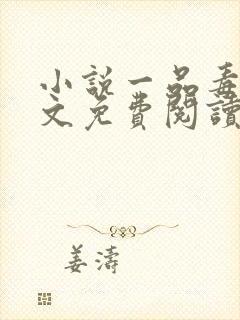 小說一品毒
文免費閱讀
姜濤